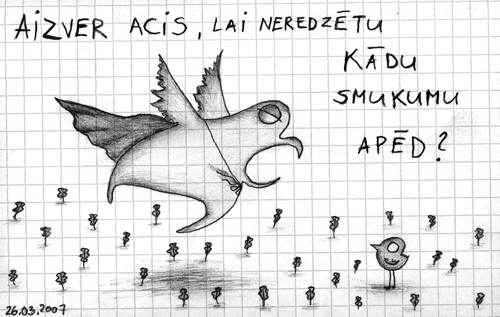 AIZVER ACIS, LAI NEREDZĒTU
KĀDU
SMUKUMU
APĒD?
26.03.2007